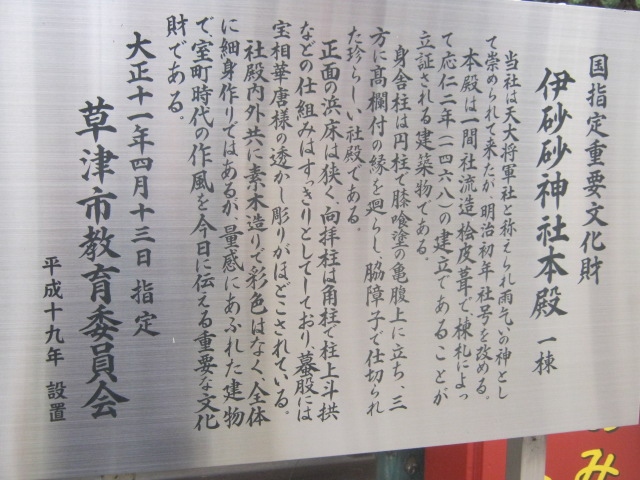 国指定重要文化財
伊砂砂神社本殿 一棟
当社は天大将軍社と称えられ雨乞いの神とし
て崇められて来たが、明治初年社号を改める。
本殿は一間社流造桧皮葺で棟札によっ
て応仁二年(一四六八)の建立であることが
立証される建築物である。
身舎柱は円柱で膝喰塗の亀腹上に立ち、三
方に高欄付の縁を廻らし、脇障子で仕切られ
た珍らしい社殿である。
正面の浜床は狭く、向拝柱は角柱で柱上斗拱
などの仕組みはすっきりとしてしており、蟇股には
宝相華唐様の透かし彫りがほどこされている。
社殿内外共に素木造りで彩色はなく、全体
に細身作りではあるが、量感にあふれた建物
で室町時代の作風を今日に伝える重要な文化
財である。
大正十一年四月十三日 指定
草津市教育委員会
平成十九年 設置
み